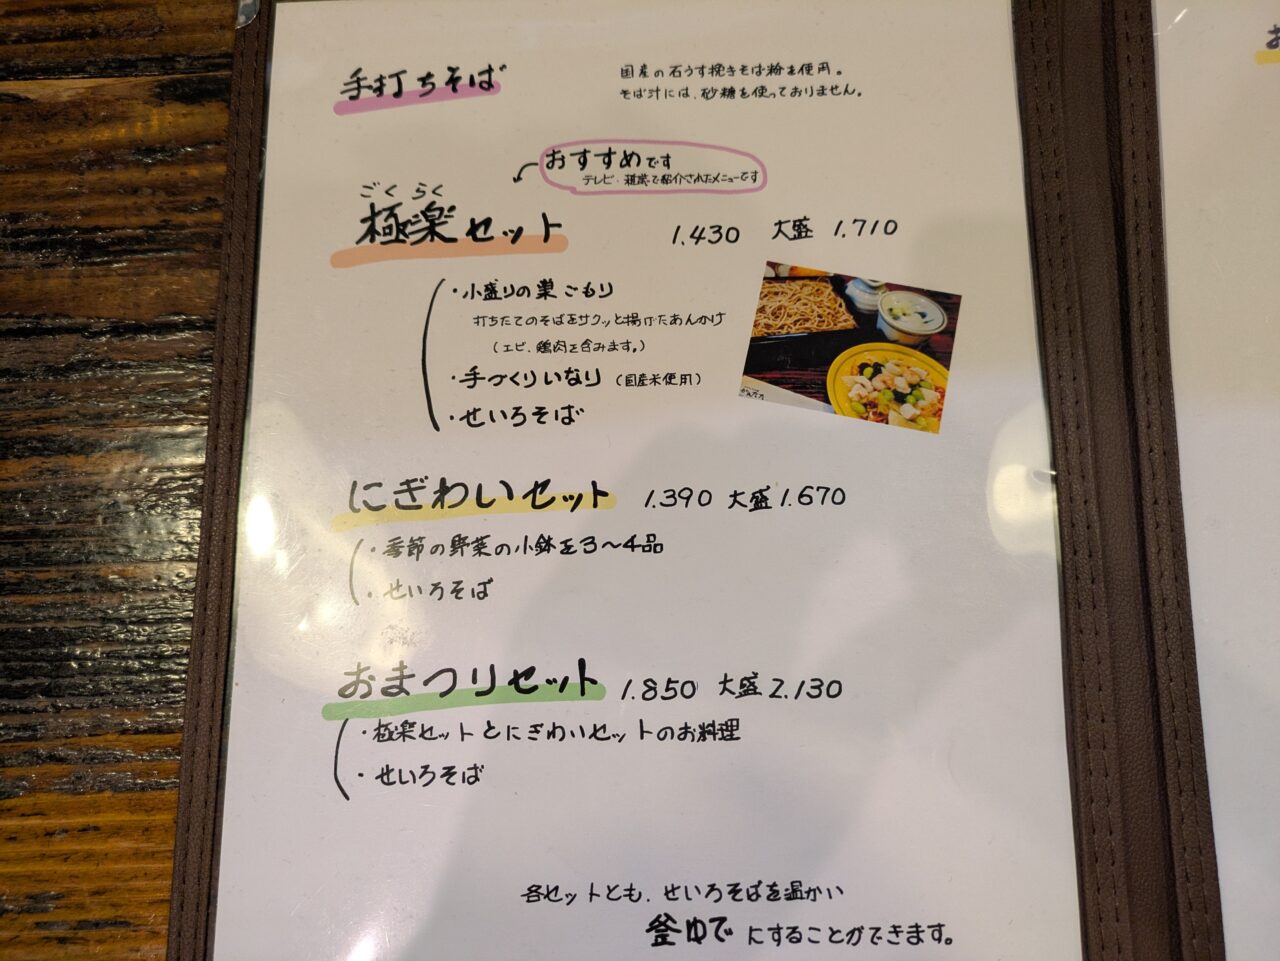 手打ちそば
国産の石うす挽きそば粉を使用。
そば汁には、砂糖を使っておりません。
おすすめです
テレビ・雑誌で紹介されたメニューです
ごくらく
極楽セット 1.430 大盛 1.710
・小盛りの巣ごもり
打ちたてのそばをサクッと揚げたあんかけ
(エビ、鶏肉を含みます。)
・手づくりいなり (国産米使用)
・せいろそば
にぎわいセット 1.390 大盛 1.670
・季節の野菜の小鉢を3〜4品
・せいろそば
おまつりセット 1.850 大盛 2.130
・極楽セットとにぎわいセットのお料理
・せいろそば
各セットとも、せいろそばを温かい
釜ゆでにすることができます。
お